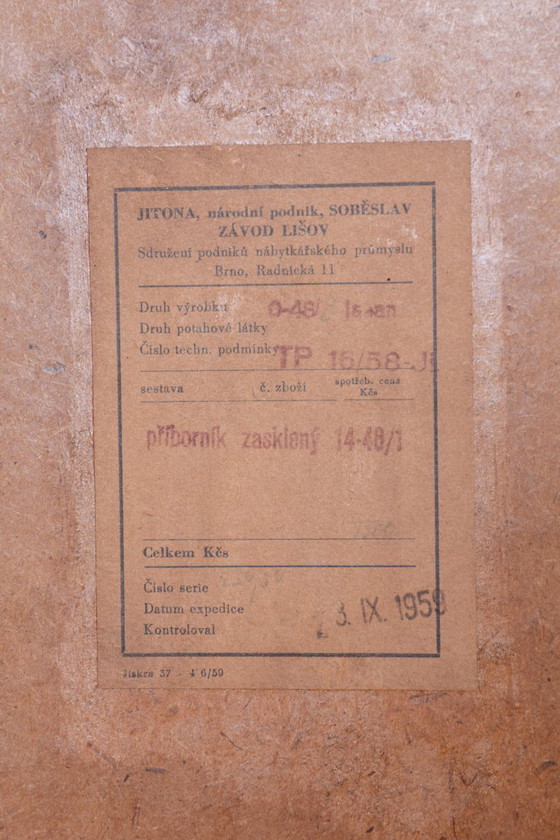 JITONA, národní podnik, SOBĚSLAV
ZÁVOD LIŠOV
Sdružení podniků nábytkářského průmyslu
Brno, Radnická 11
Druh výrobku 0-48/
Druh potahové látky
Číslo techn. podmínky TP 16/58-J
sestava č. zboží spotřeb. cena
Kčs
příborník zasklený 14-48/1
Celkem Kčs
Číslo serie
Datum expedice 3. IX. 1959
Kontroloval
Jiskra 37 - 4 6/59